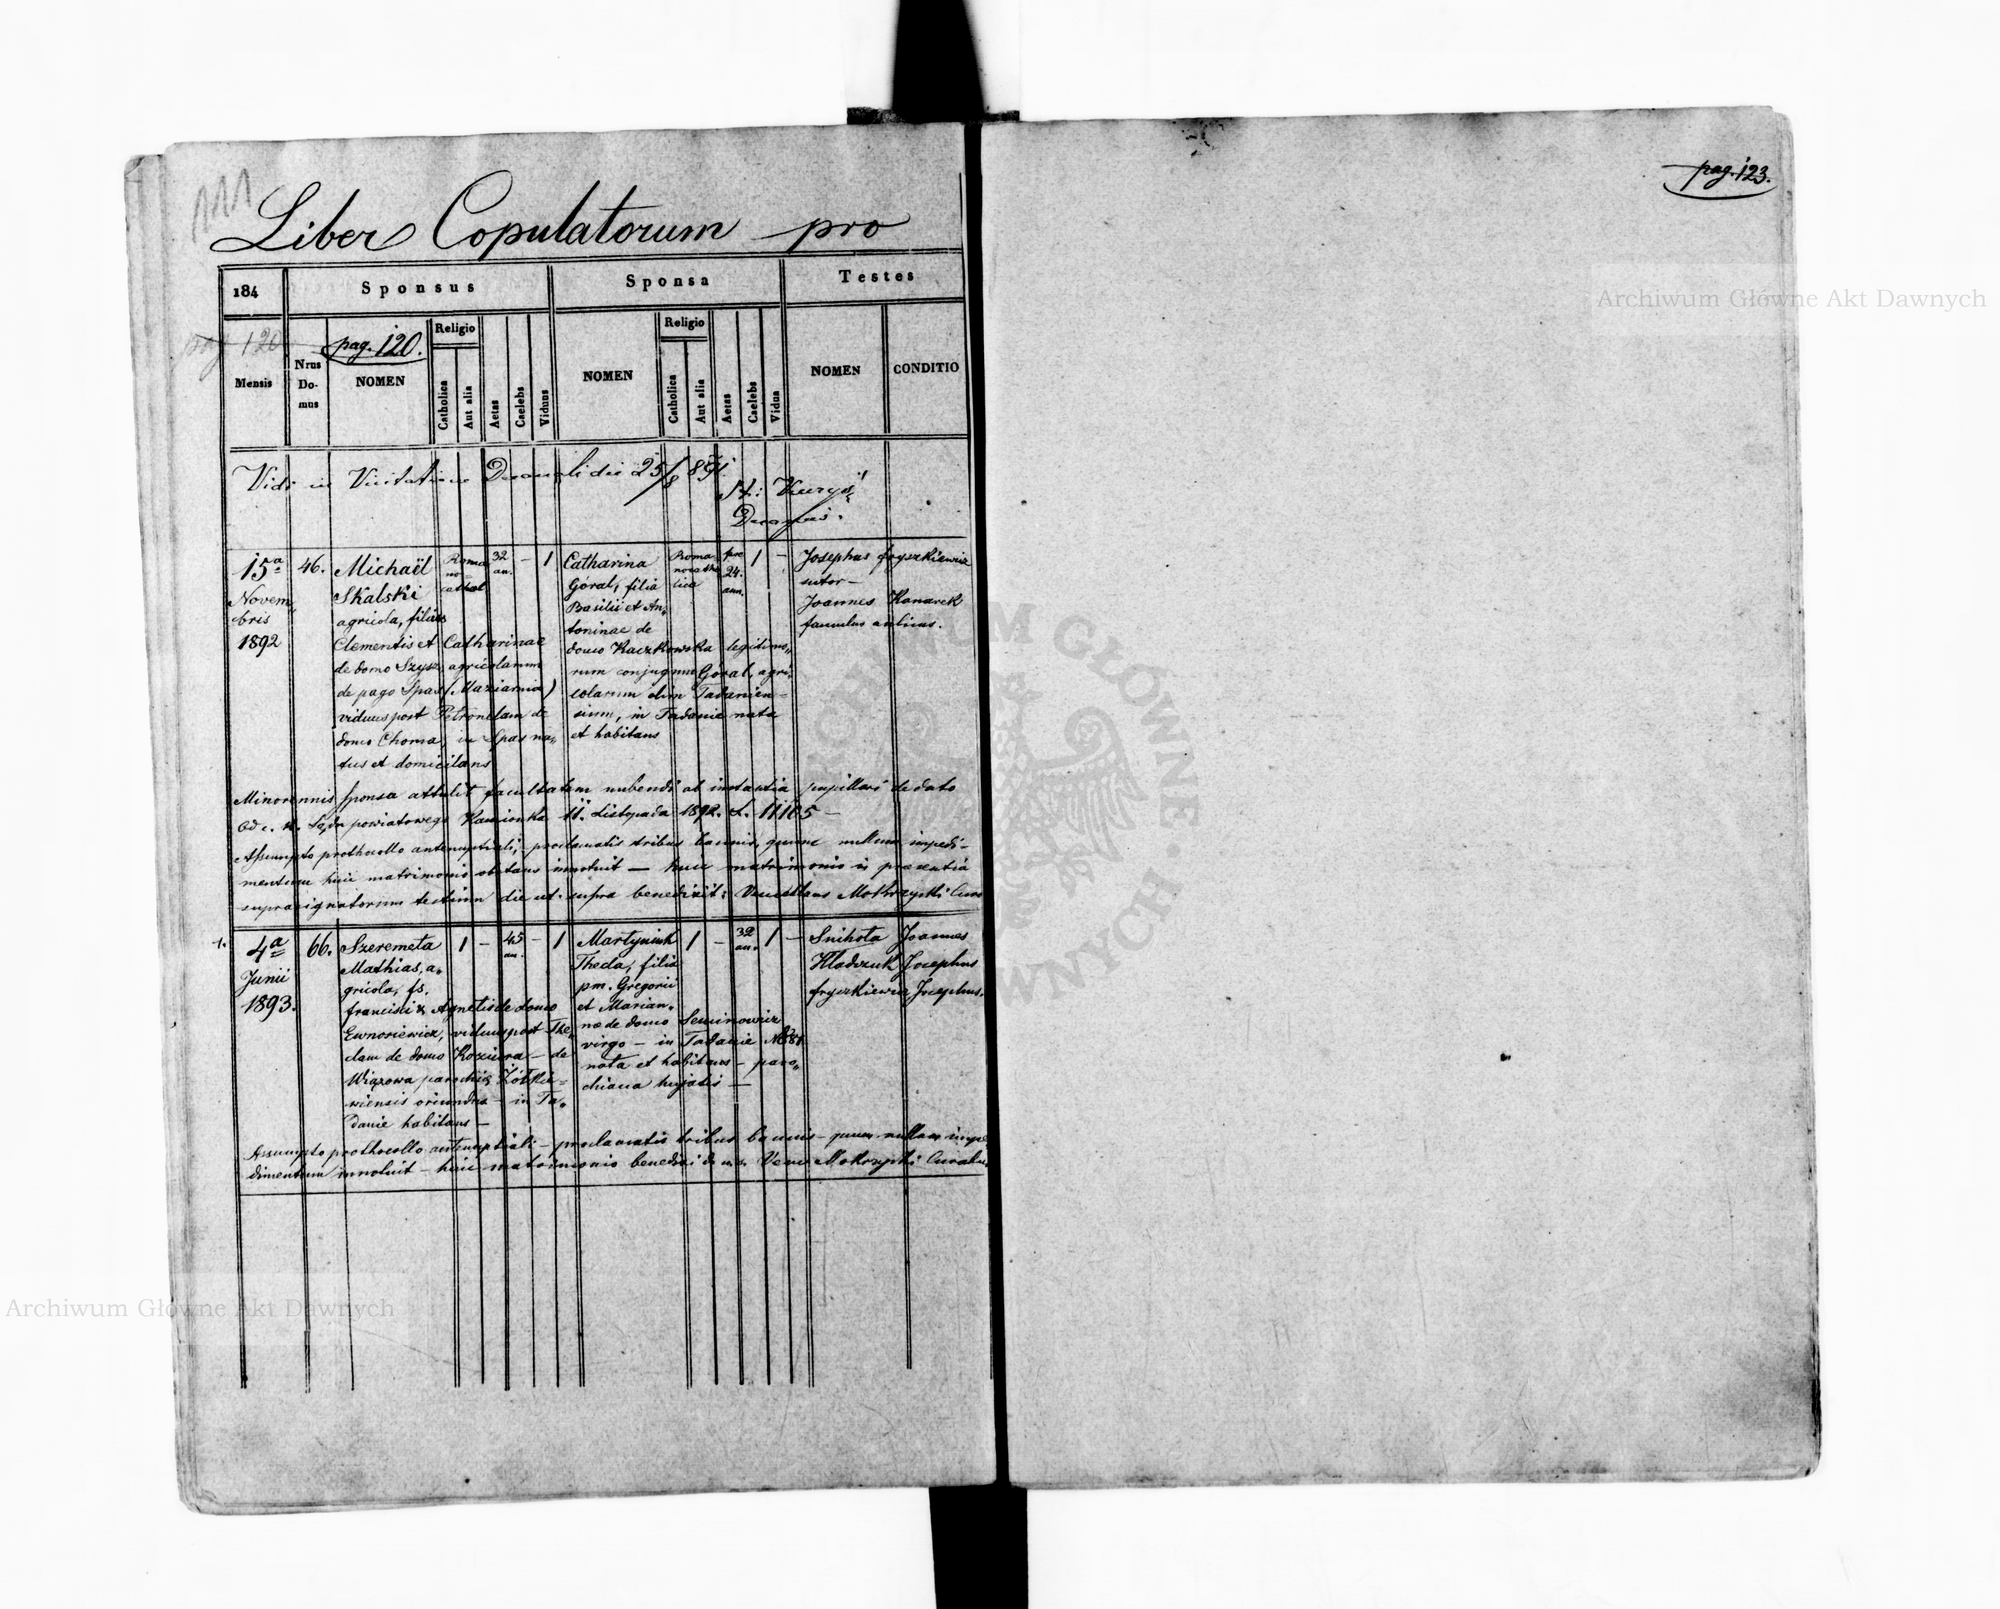 111
Liber Copulatorum pro
pag. 123.
184
Sponsus
Sponsa
Testes
pag 120
Mensis
Nrus Domus
pag. 120.
NOMEN
Religio
Catholica
Aut alia
Aetas
Caelebs
Viduus
NOMEN
Religio
Catholica
Aut alia
Aetas
Caelebs
Vidua
NOMEN
CONDITIO
Vidi in Visitatione Decanali die 25/8 891.
Decanus.
15a
Novem
bris
1892
46.
Michaël
Skalski
agricola, filius
Clementis et Catharinae
de domo Szysz, agricolarum
de pago Spas (Maziarnia)
viduus post Petronelam de
domo Choma, in Spas na„
tus et domicilans
Roma
no
cathol
32
an.
–
1
Catharina
Goral, filia
Basilii et An„
toninae de
domo Kaczkowska legitimo„
rum conjugum Goral, agri„
colarum olim Tadanien=
sium, in Tadanie nata
et habitans
Roma
nocatho
lica
pre
24.
ann.
1
–
Josephus Fryszkiewicz
sutor –
Joannes Konarek
famulus aulicus.
Minorennis sponsa attulit facultatem nubendi ab instantia pupillari de dato
Od c. k. Sądu powiatowego Kamionka 11. Listopada 1892. L. 11105 –
Assumpto prothocollo antenuptiali, proclamatis tribus bannis, quum nullum impedi-
mentum huic matrimonio obstans innotuit — huic matrimonio in praesentia
suprasignatorum testium die ut supra benedixit: Venceslaus Mokrzycki Cura
1.
4a
Junii
1893.
66.
Szeremeta
Mathias, a„
gricola, fs.
Francisci & Agnetis de domo
viduus post The„
clam de domo Koziura – de
Wiązowa parochiæ Żółkie=
wiensis oriundus – in Ta„
danie habitans –
1
–
45
an.
–
1
Martyniuk
Thecla, filia
pm. Gregorii
et Marian„
næ de domo Seminowicz
virgo – in Tadanie № 81
nata et habitans – paro„
chiana hujatis —
1
–
32
an.
1
–
Snihota Joannes
Hladczuk Josephus
Fryszkiewicz Josephus.
Assumpto prothocollo antenuptiali – proclamatis tribus bannis – quum nullum impe
dimentum innotuit – huic matrimonio benedixi d. u. s. Venc Mokrzycki Curatus
Archiwum Główne Akt Dawnych
Archiwum Główne Akt Dawnych
ARCHIWUM GŁÓWNE AKT DAWNYCH